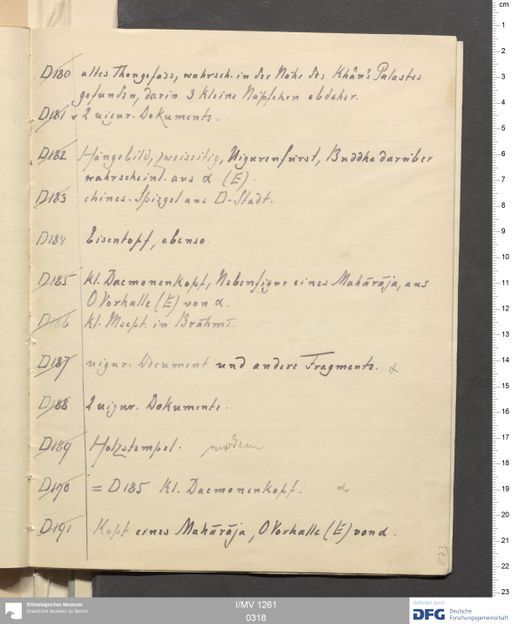 D180 altes Thongefäss, wahrsch. in der Nähe des Khân's Palastes
gefunden, darin 3 kleine Näpfchen ebdaher.
D181 2 uigur. Dokumente.
D182 Hängebild, zweiseitig, Uigurenfürst, Buddha darüber
wahrscheinl. aus α (E).
D183 chines. Spiegel aus D-Stadt.
D184 Eisentopf, ebenso.
D185 kl. Daemonenkopf, Nebenfigur eines Mahārāja, aus
O Vorhalle (E) von α.
D186 kl. Mscpt. in Brāhmī.
D187 uigur. Document und andere Fragmente. α
D188 2 uigur. Dokumente.
D189 Holzstempel. modern
D190 = D185 kl. Daemonenkopf. α
D191 Kopf eines Mahārāja, O Vorhalle (E) von α.
Ethnologisches Museum
Staatliche Museen zu Berlin
I/MV 1261
0318
gefördert durch
DFG Deutsche
Forschungsgemeinschaft
cm
1
2
3
4
5
6
7
8
9
10
11
12
13
14
15
16
17
18
19
20
21
22
23